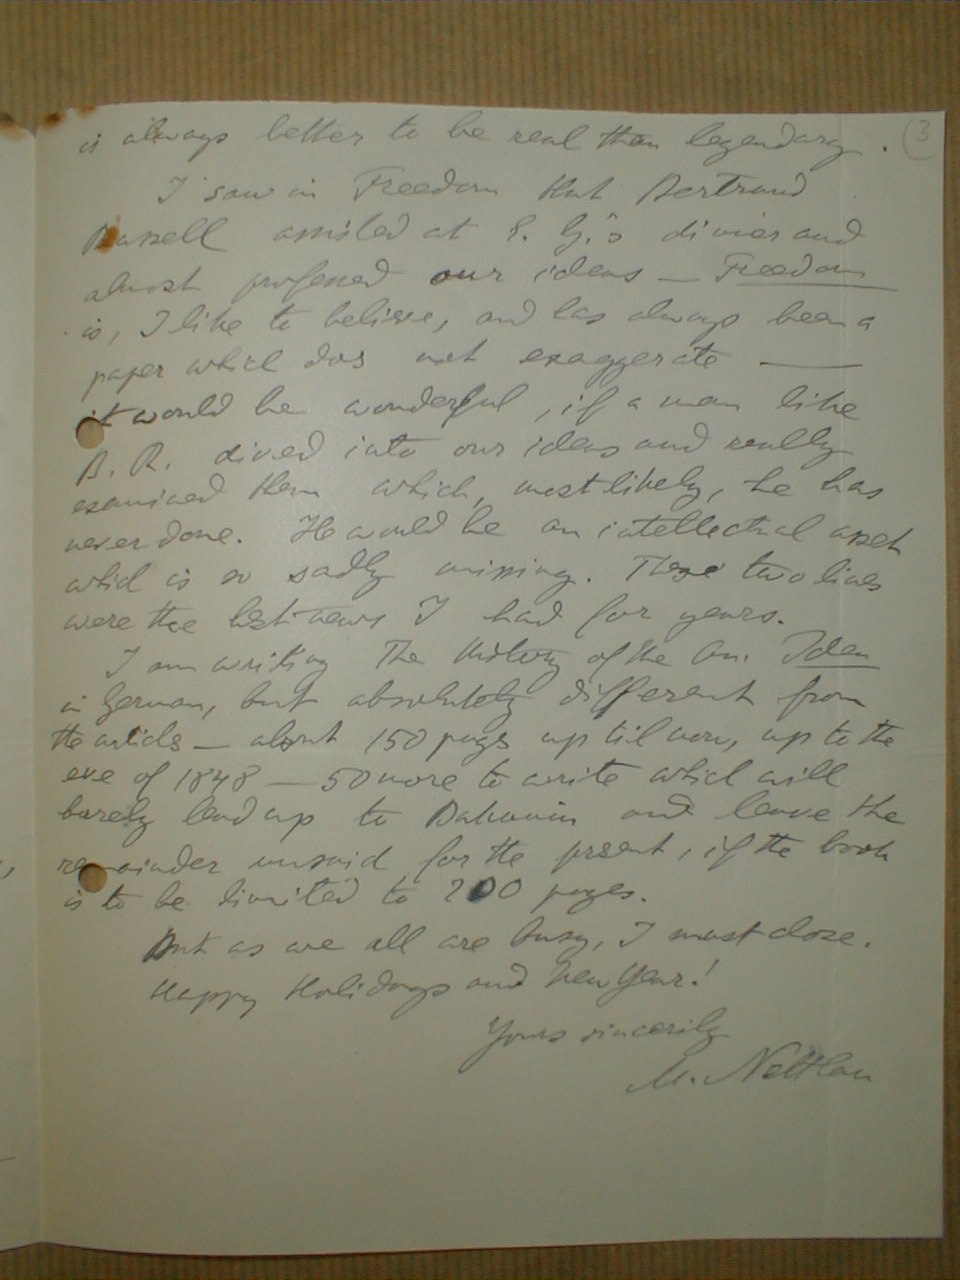 (3
is always better to be real than legendary.
I saw in Freedom that Bertrand
Russell assisted at E. G.'s dinner and
almost professed our ideas — Freedom
is, I like to believe, and has always been a
paper which does not exaggerate —
it would be wonderful, if a man like
B. R. dived into our ideas and really
examined them which, most likely, he has
never done. He would be an intellectual asset
which is so sadly missing. These two lines
were the best news I had for years.
I am writing The History of the An. Idea
in German, but absolutely different from
the articles — about 150 pages up til now, up to the
eve of 1848 — 50 more to write which will
barely lead up to Bakunin and leave the
remainder unsaid for the present, if the book
is to be limited to 200 pages.
But as we all are busy, I must close.
Happy Holidays and New Year!
Yours sincerily
M. Nettlau